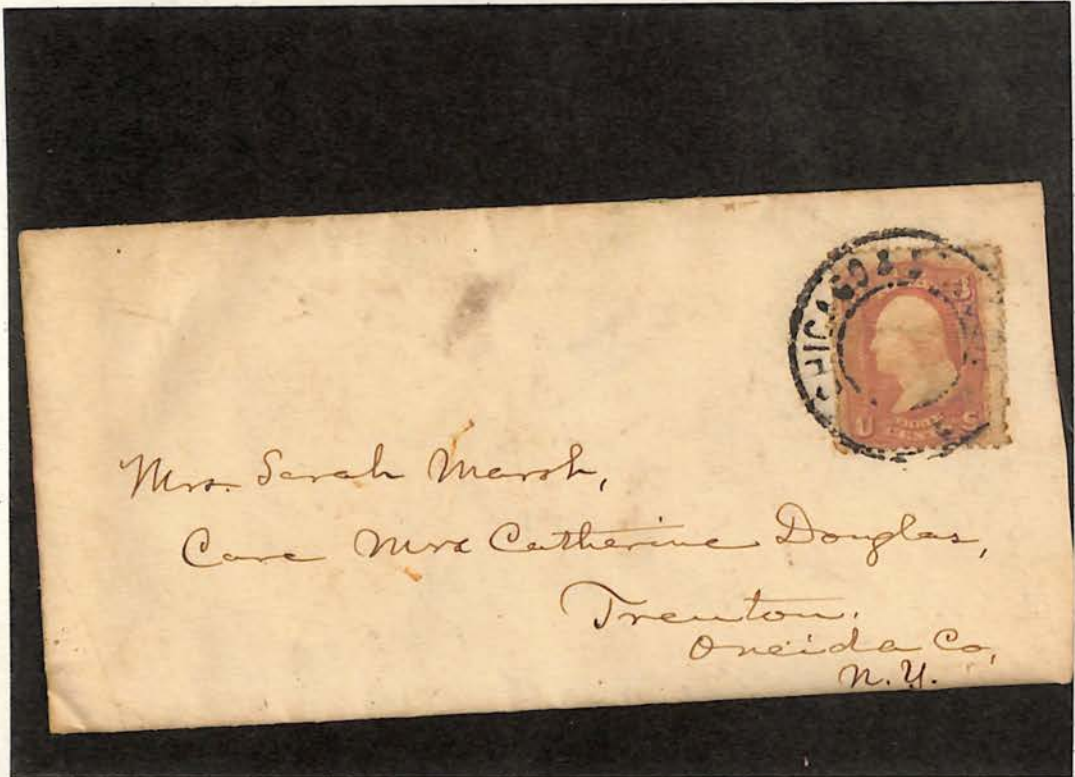 CHICAGO &
U S
Mrs. Sarah Marsh,
Care Mrs Catherine Douglas,
Trenton.
Oneida Co,
N.Y.